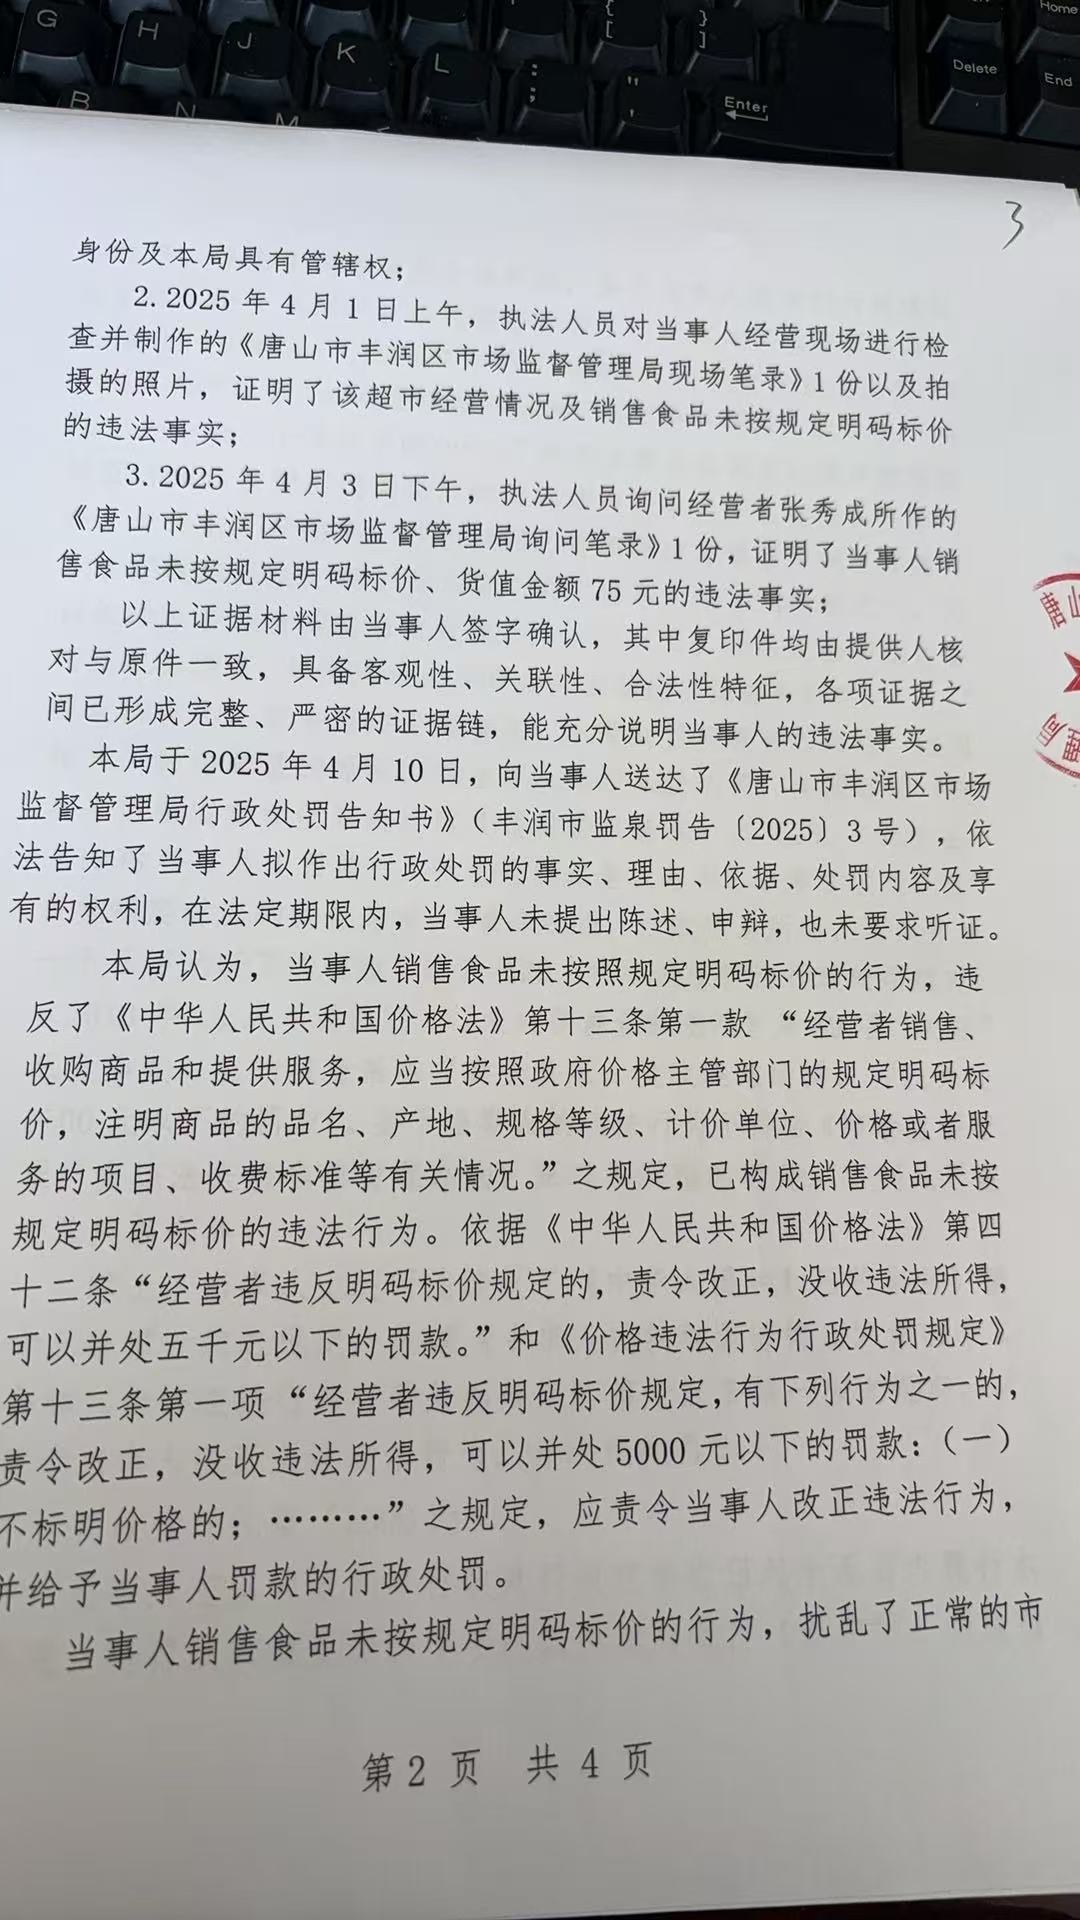 G
H
J
K
L
{
[
}
]
:
;
"
'
Enter
Delete
Home
End
B
N
M
3
身份及本局具有管辖权；
2.2025 年 4 月 1 日上午，执法人员对当事人经营现场进行检
查并制作的《唐山市丰润区市场监督管理局现场笔录》1 份以及拍
摄的照片，证明了该超市经营情况及销售食品未按规定明码标价
的违法事实；
3.2025 年 4 月 3 日下午，执法人员询问经营者张秀成所作的
《唐山市丰润区市场监督管理局询问笔录》1 份，证明了当事人销
售食品未按规定明码标价、货值金额 75 元的违法事实；
以上证据材料由当事人签字确认，其中复印件均由提供人核
对与原件一致，具备客观性、关联性、合法性特征，各项证据之
间已形成完整、严密的证据链，能充分说明当事人的违法事实。
本局于 2025 年 4 月 10 日，向当事人送达了《唐山市丰润区市场
监督管理局行政处罚告知书》（丰润市监泉罚告〔2025〕3 号），依
法告知了当事人拟作出行政处罚的事实、理由、依据、处罚内容及享
有的权利，在法定期限内，当事人未提出陈述、申辩，也未要求听证。
本局认为，当事人销售食品未按照规定明码标价的行为，违
反了《中华人民共和国价格法》第十三条第一款 “经营者销售、
收购商品和提供服务，应当按照政府价格主管部门的规定明码标
价，注明商品的品名、产地、规格等级、计价单位、价格或者服
务的项目、收费标准等有关情况。”之规定，已构成销售食品未按
规定明码标价的违法行为。依据《中华人民共和国价格法》第四
十二条“经营者违反明码标价规定的，责令改正，没收违法所得，
可以并处五千元以下的罚款。”和《价格违法行为行政处罚规定》
第十三条第一项“经营者违反明码标价规定，有下列行为之一的，
责令改正，没收违法所得，可以并处 5000 元以下的罚款：（一）
不标明价格的；………”之规定，应责令当事人改正违法行为，
并给予当事人罚款的行政处罚。
当事人销售食品未按规定明码标价的行为，扰乱了正常的市
第 2 页 共 4 页
唐山